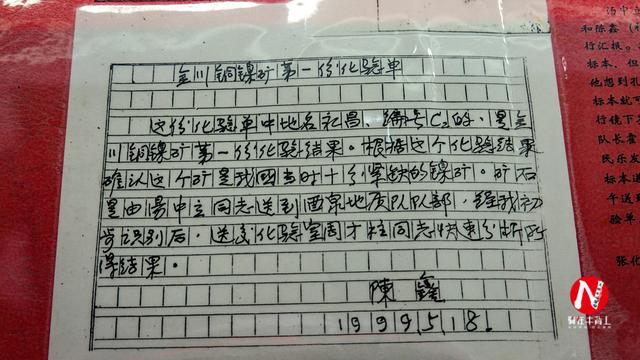 金川铜镍矿第一份化验单
这份化验单中地名社昌，编号C2的，是金
川铜镍矿第一份化验结果。根据这个化验结果
确认这个矿是我國当时十分紧缺的镍矿。矿石
是由湯中立同志送到酒泉地质队队部，经我初
步识别后，送交化验室周才柱同志快速分析所
得结果。
陳鑫
1999.5.18.
汤中
和陈鑫（
行汇报。
标本，但
他想到孔
标本就可
行镜下
队长霍
民乐发
标本送
午送到
验单
张化
N